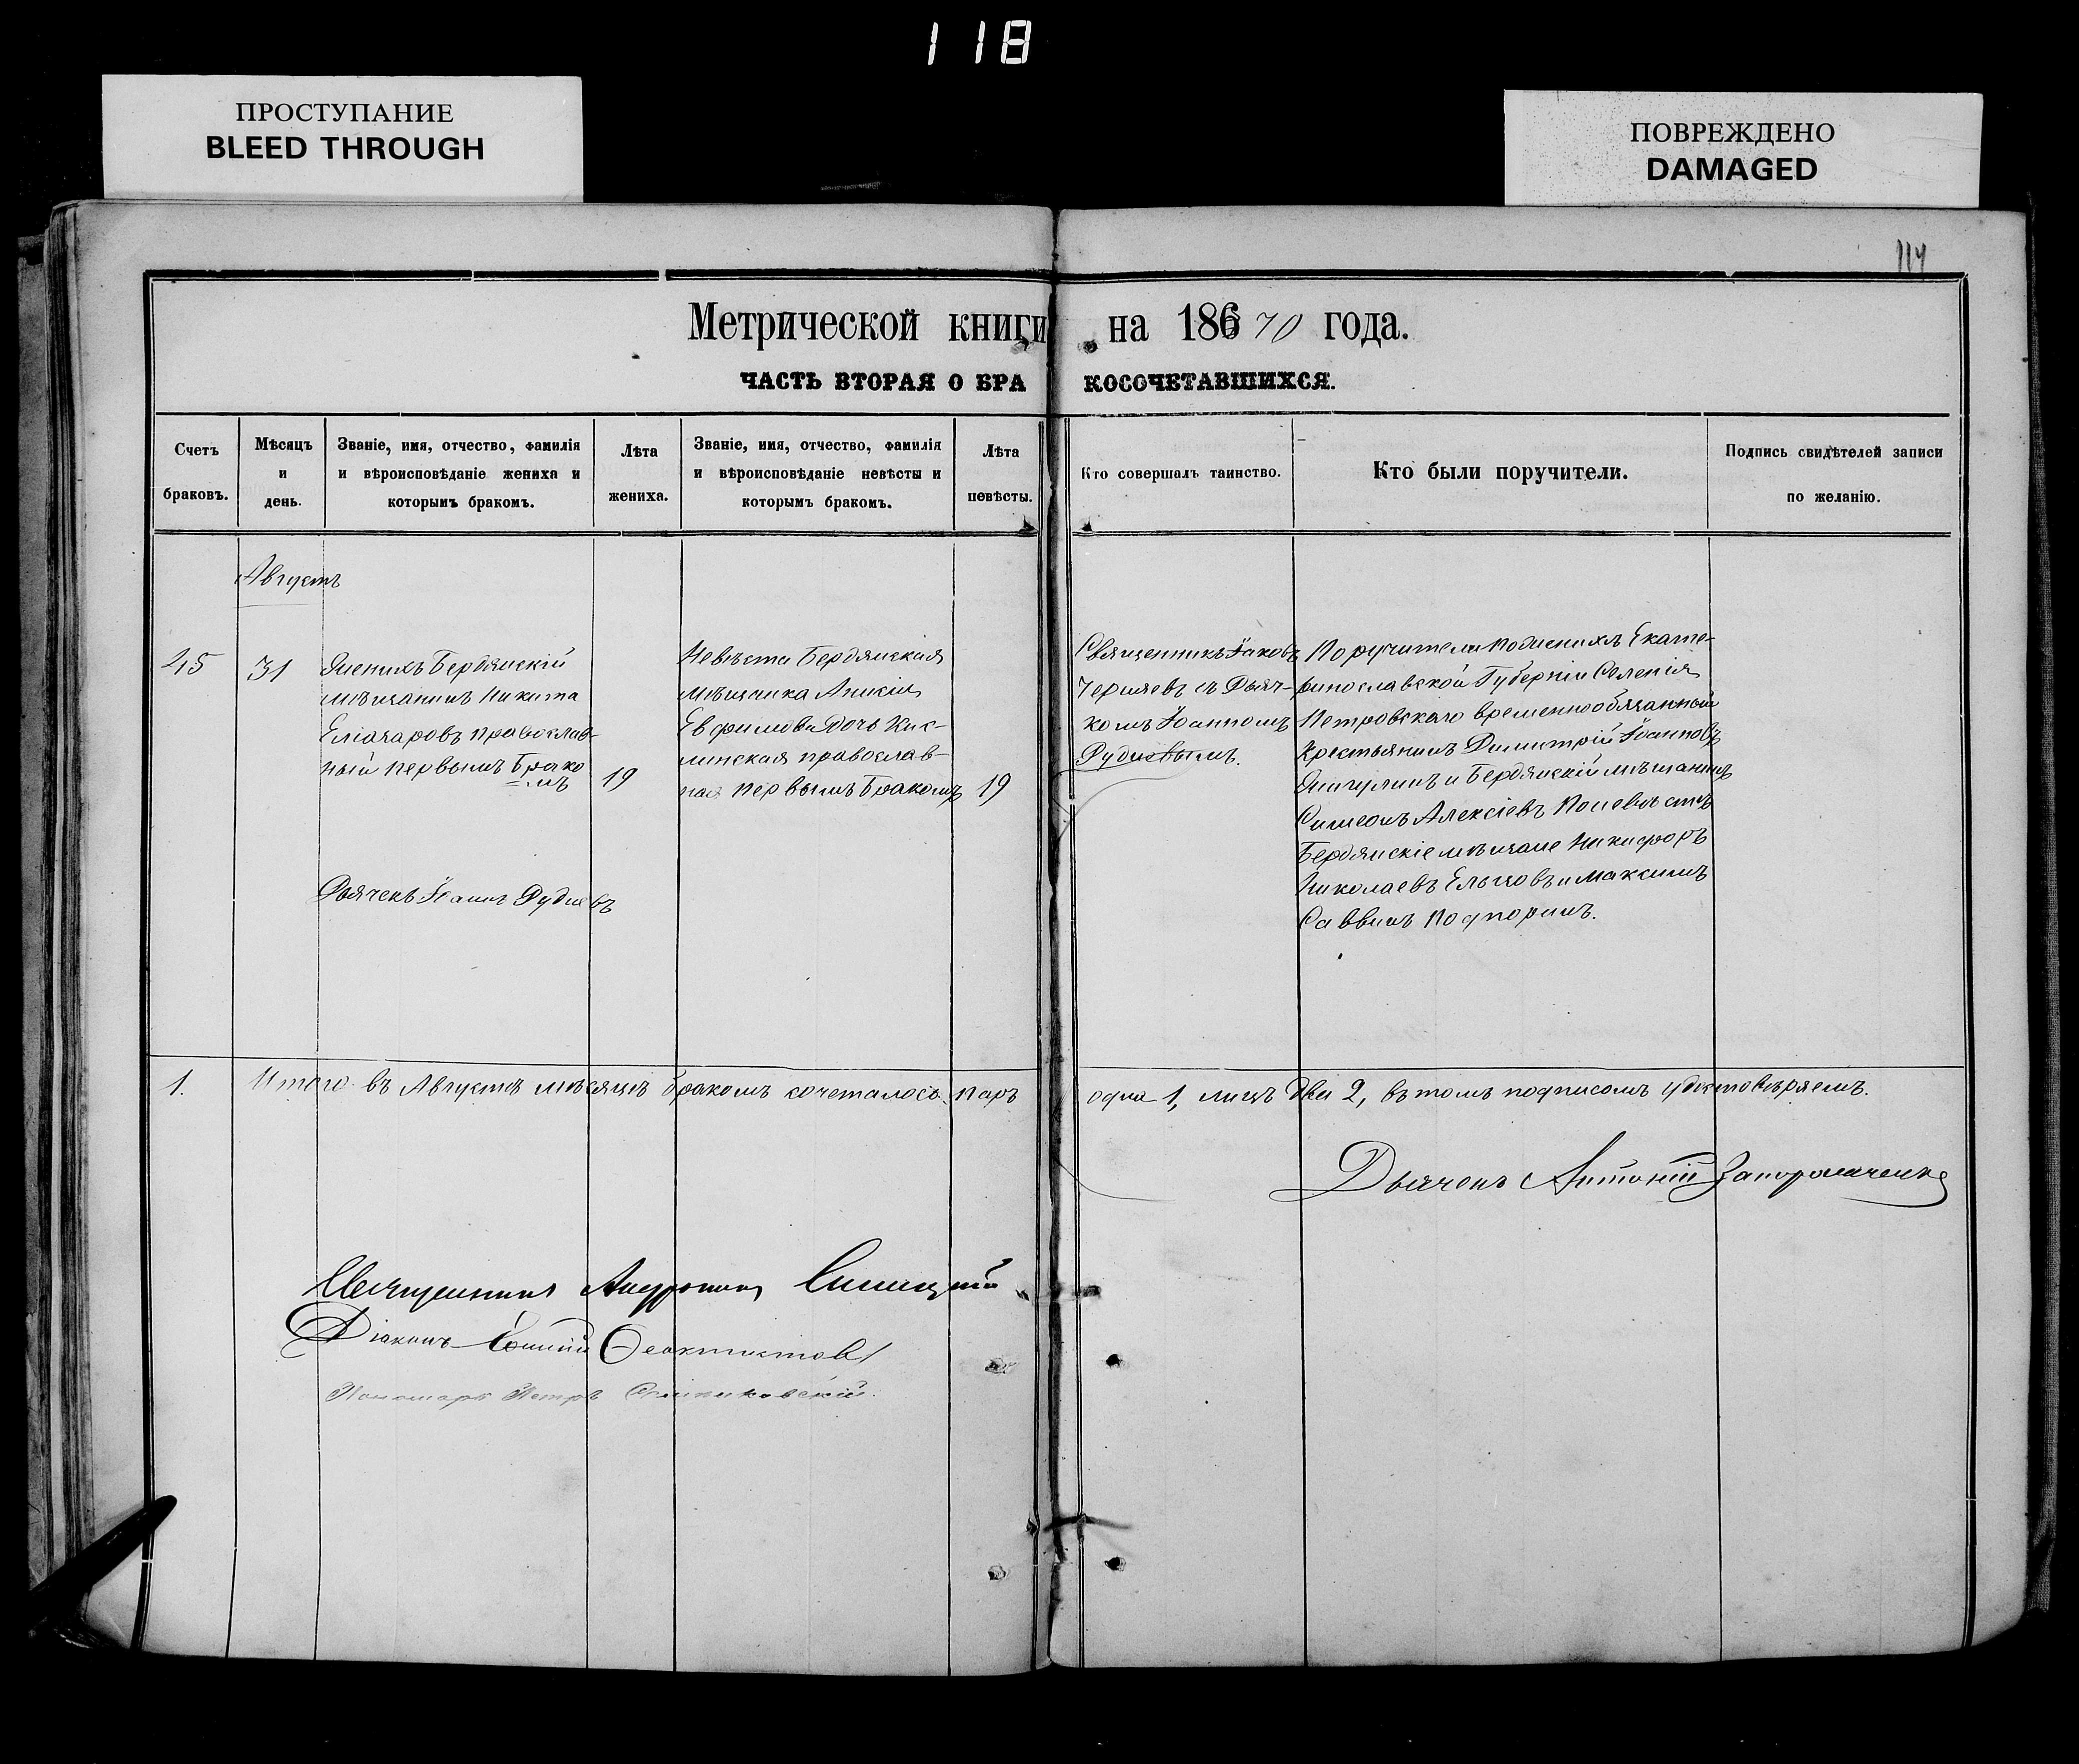 118
ПРОСТУПАНИЕ
BLEED THROUGH
ПОВРЕЖДЕНО
DAMAGED
114
Метрической книги на 186 70 года.
ЧАСТЬ ВТОРАЯ О БРАКОСОЧЕТАВШИХСЯ.
Счетъ
браковъ.
Мѣсяцъ
и
день.
Званіе, имя, отчество, фамилія
и вѣроисповѣданіе жениха и
которымъ бракомъ.
Лѣта
жениха.
Званіе, имя, отчество, фамилія
и вѣроисповѣданіе невѣсты и
которымъ бракомъ.
Лѣта
невѣсты.
Кто совершалъ таинство.
Кто были поручители.
Подпись свидѣтелей записи
по желанію.
Августъ
45
31
Женихъ Бердянскій
мѣщанинъ Никита
православ-
ный первымъ Брако
мъ
19
Невѣста Бердянская
мѣщанка
Евфимова дочь
православ-
ная первымъ Бракомъ
19
Священникъ Іаковъ
Черняевъ съ Дьяч-
комъ Іоанномъ
Рудневымъ.
Поручители По женихѣ Екате-
ринославской Губерніи Селенія
Петровскаго временнообязанный
Крестьянинъ Димитрій Іоанновъ
и Бердянскій мѣщанинъ
Симеонъ Алексіевъ По невѣстѣ
Бердянскіе мѣщане Никифоръ
Николаевъ Ельцовъ и Максимъ
Саввинъ Подпоринъ.
Дьячекъ Іоаннъ Рудневъ
1.
Итого въ Августѣ мѣсяцѣ бракомъ сочеталось паръ одна 1, лицъ два 2, въ томъ подписомъ удостовѣряемъ.
Дьячекъ Антоній Запорожченко
Священникъ Андроникъ Синицкій
Діаконъ Феоктистовъ
Пономарь Петръ